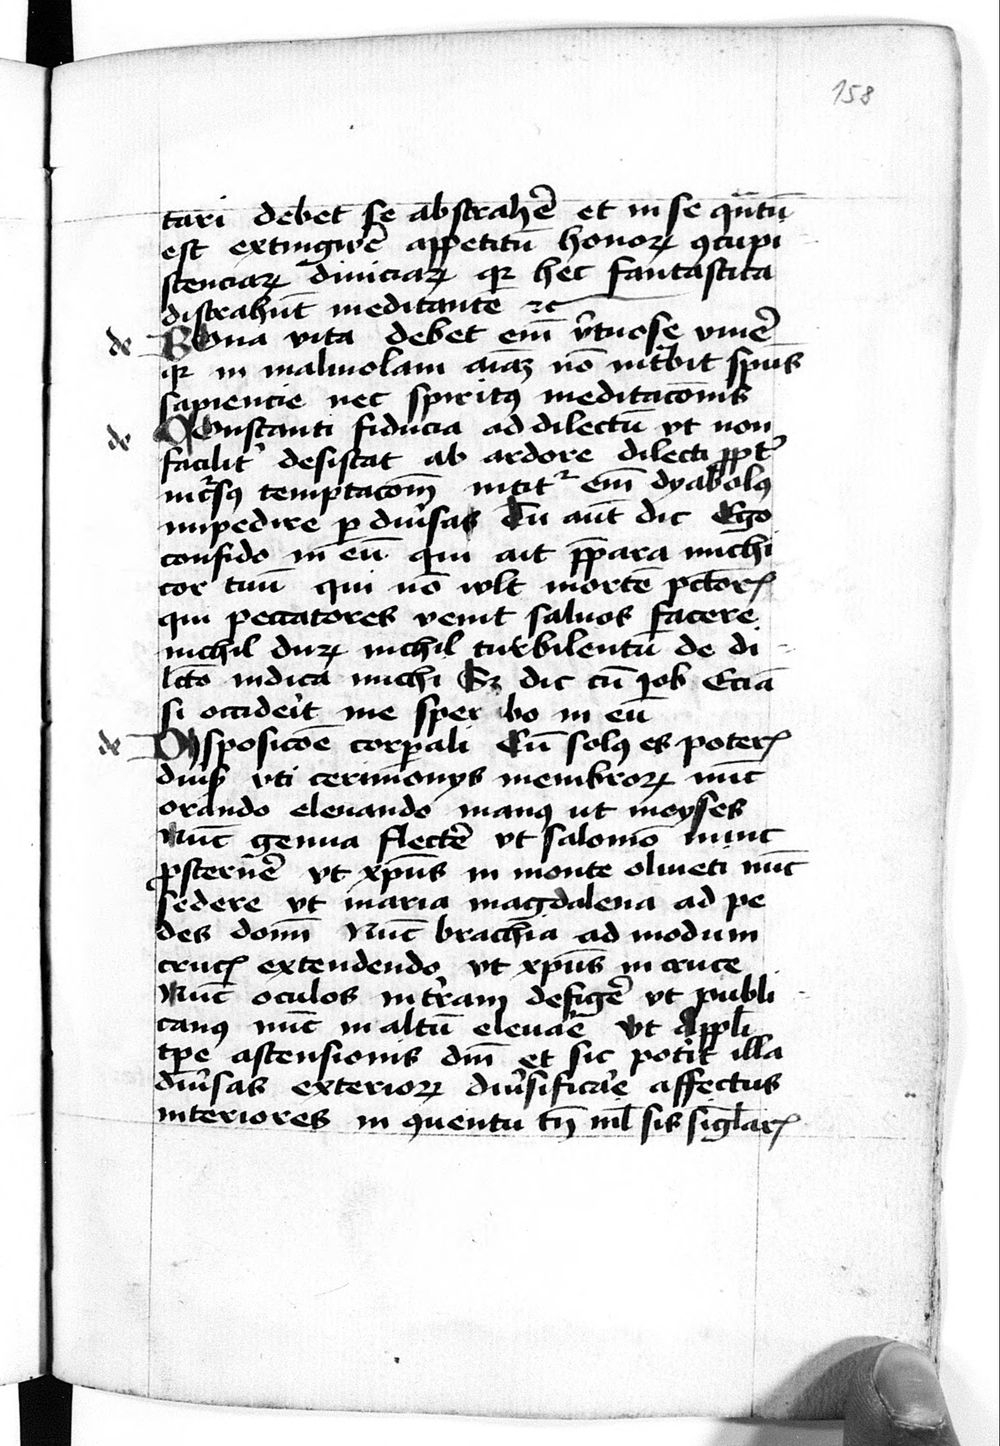 158
tari debet se abstrahe̅ et in se qua̅tu̅
est extingwe̅ appetitu̅ honoꝝ ꝯcupi
scenciaꝝ diuiciaꝝ qꝛ hec fantastica
distrahu̅t meditante̅ ⁊c
de Bona vita debet eni̅ v̓tuose viue̅
qꝛ in maliuolam aı̅aꝫ no̅ int̓bit spu̅s
sapiencie nec spiritꝯ meditaco̅nis
de Constanti fiducia ad dilectu̅ vt non
facilit̓ desistat ab ardore dilecti ꝓpt̓
incʳsꝯ temptaco̅m̅ nititʳ eni̅ dyabolꝯ
impedire per diu̓sas Tu au̅t dic Ego
confido in eu̅ qui ait p̅para michi
cor tuu̅ qui no̅ wlt morte̅ pc̅torꝭ
qui peccatores venit saluos facere
nichil duꝝ nichil turbilentu̅ de di
lc̅o indica michi Sꝫ dic cu̅ Job Ecia̅
si occider̓it me sperabo in eu̅
de Disposico̅e corporali Cu̅ solꝯ es poterꝭ
diu̓sis vti cerimonijs membroꝝ nu̅c
orando eleuando manꝯ ut moyses
Nu̅c genua flecte̅ vt salomo̅ nunc
ꝓsterne̅ vt xpu̅s in monte oliueti nu̅c
sedere vt maria magdalena ad pe
des domi̅ Nu̅c brachia ad modum
crucꝭ extendendo vt xpu̅s in cruce
Nu̅c oculos in t̓ram defige̅ vt publi
canꝯ nu̅c in altu̅ eleua̅e vt Appl̅i
tp̅e ascensionis dn̅i et sic pot̓it illa
diu̓sas exterioꝝ diu̓sifica̅e affectus
interiores in ꝯuentu tn̅ nl̅ sis sigl̅arꝭ